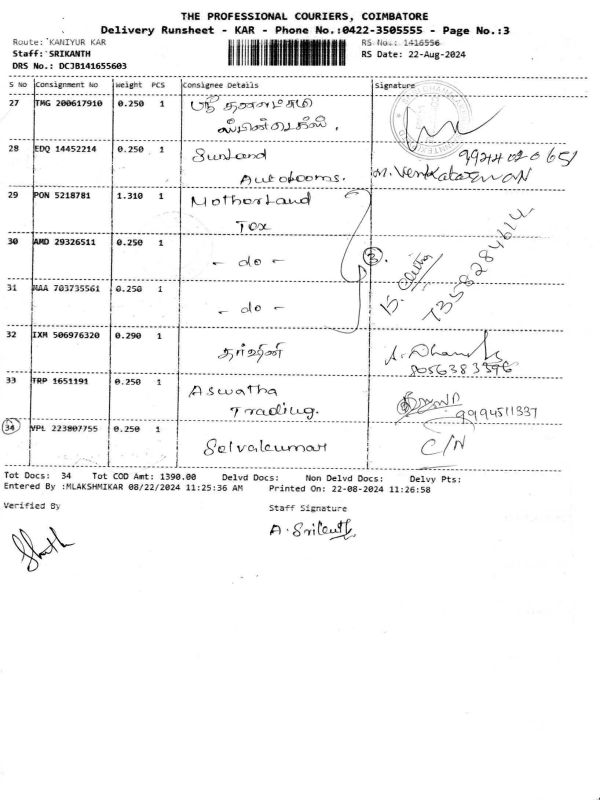 THE PROFESSIONAL COURIERS, COIMBATORE
Delivery Runsheet - KAR - Phone No.:0422-3505555 - Page No.:3
Route: KANIYUR KAR RS No.: 1416556
Staff: SRIKANTH RS Date: 22-Aug-2024
DRS No.: DCJB141655603
S No Consignment No Weight PCS Consignee Details Signature
27 TMG 200617910 0.250 1 ஸ்ரீ தனலட்சுமி
28 EDQ 14452214 0.250 1 Sunland 9944020651
Autolooms. M. Venkatesman
29 PON 5218781 1.310 1 Motherland
Tex
30 AMD 29326511 0.250 1 - do - 3 7358284614
31 MAA 703735561 0.250 1 - do -
32 IXM 506976320 0.290 1 தர்ஷினி
8056383396
33 TRP 1651191 0.250 1 Aswatha
Trading. 9994511337
34 VPL 223807755 0.250 1 Selvakumar C/N
Tot Docs: 34 Tot COD Amt: 1390.00 Delvd Docs: Non Delvd Docs: Delvy Pts:
Entered By :MLAKSHMIKAR 08/22/2024 11:25:36 AM Printed On: 22-08-2024 11:26:58
Verified By Staff Signature
A. Srikanth